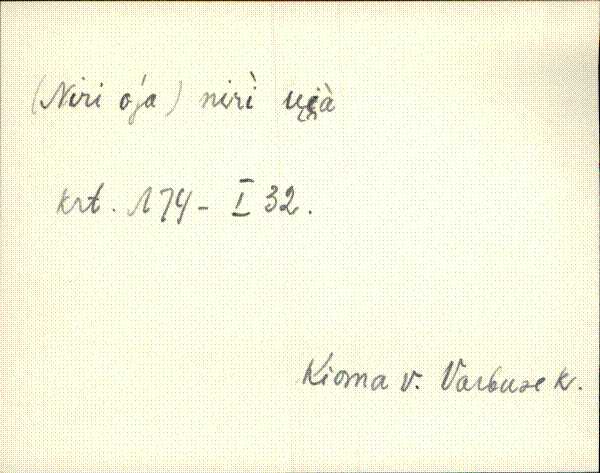 (Niri oja) nirì
krt. 174 - I 32.
Kioma v. Varbuse k.